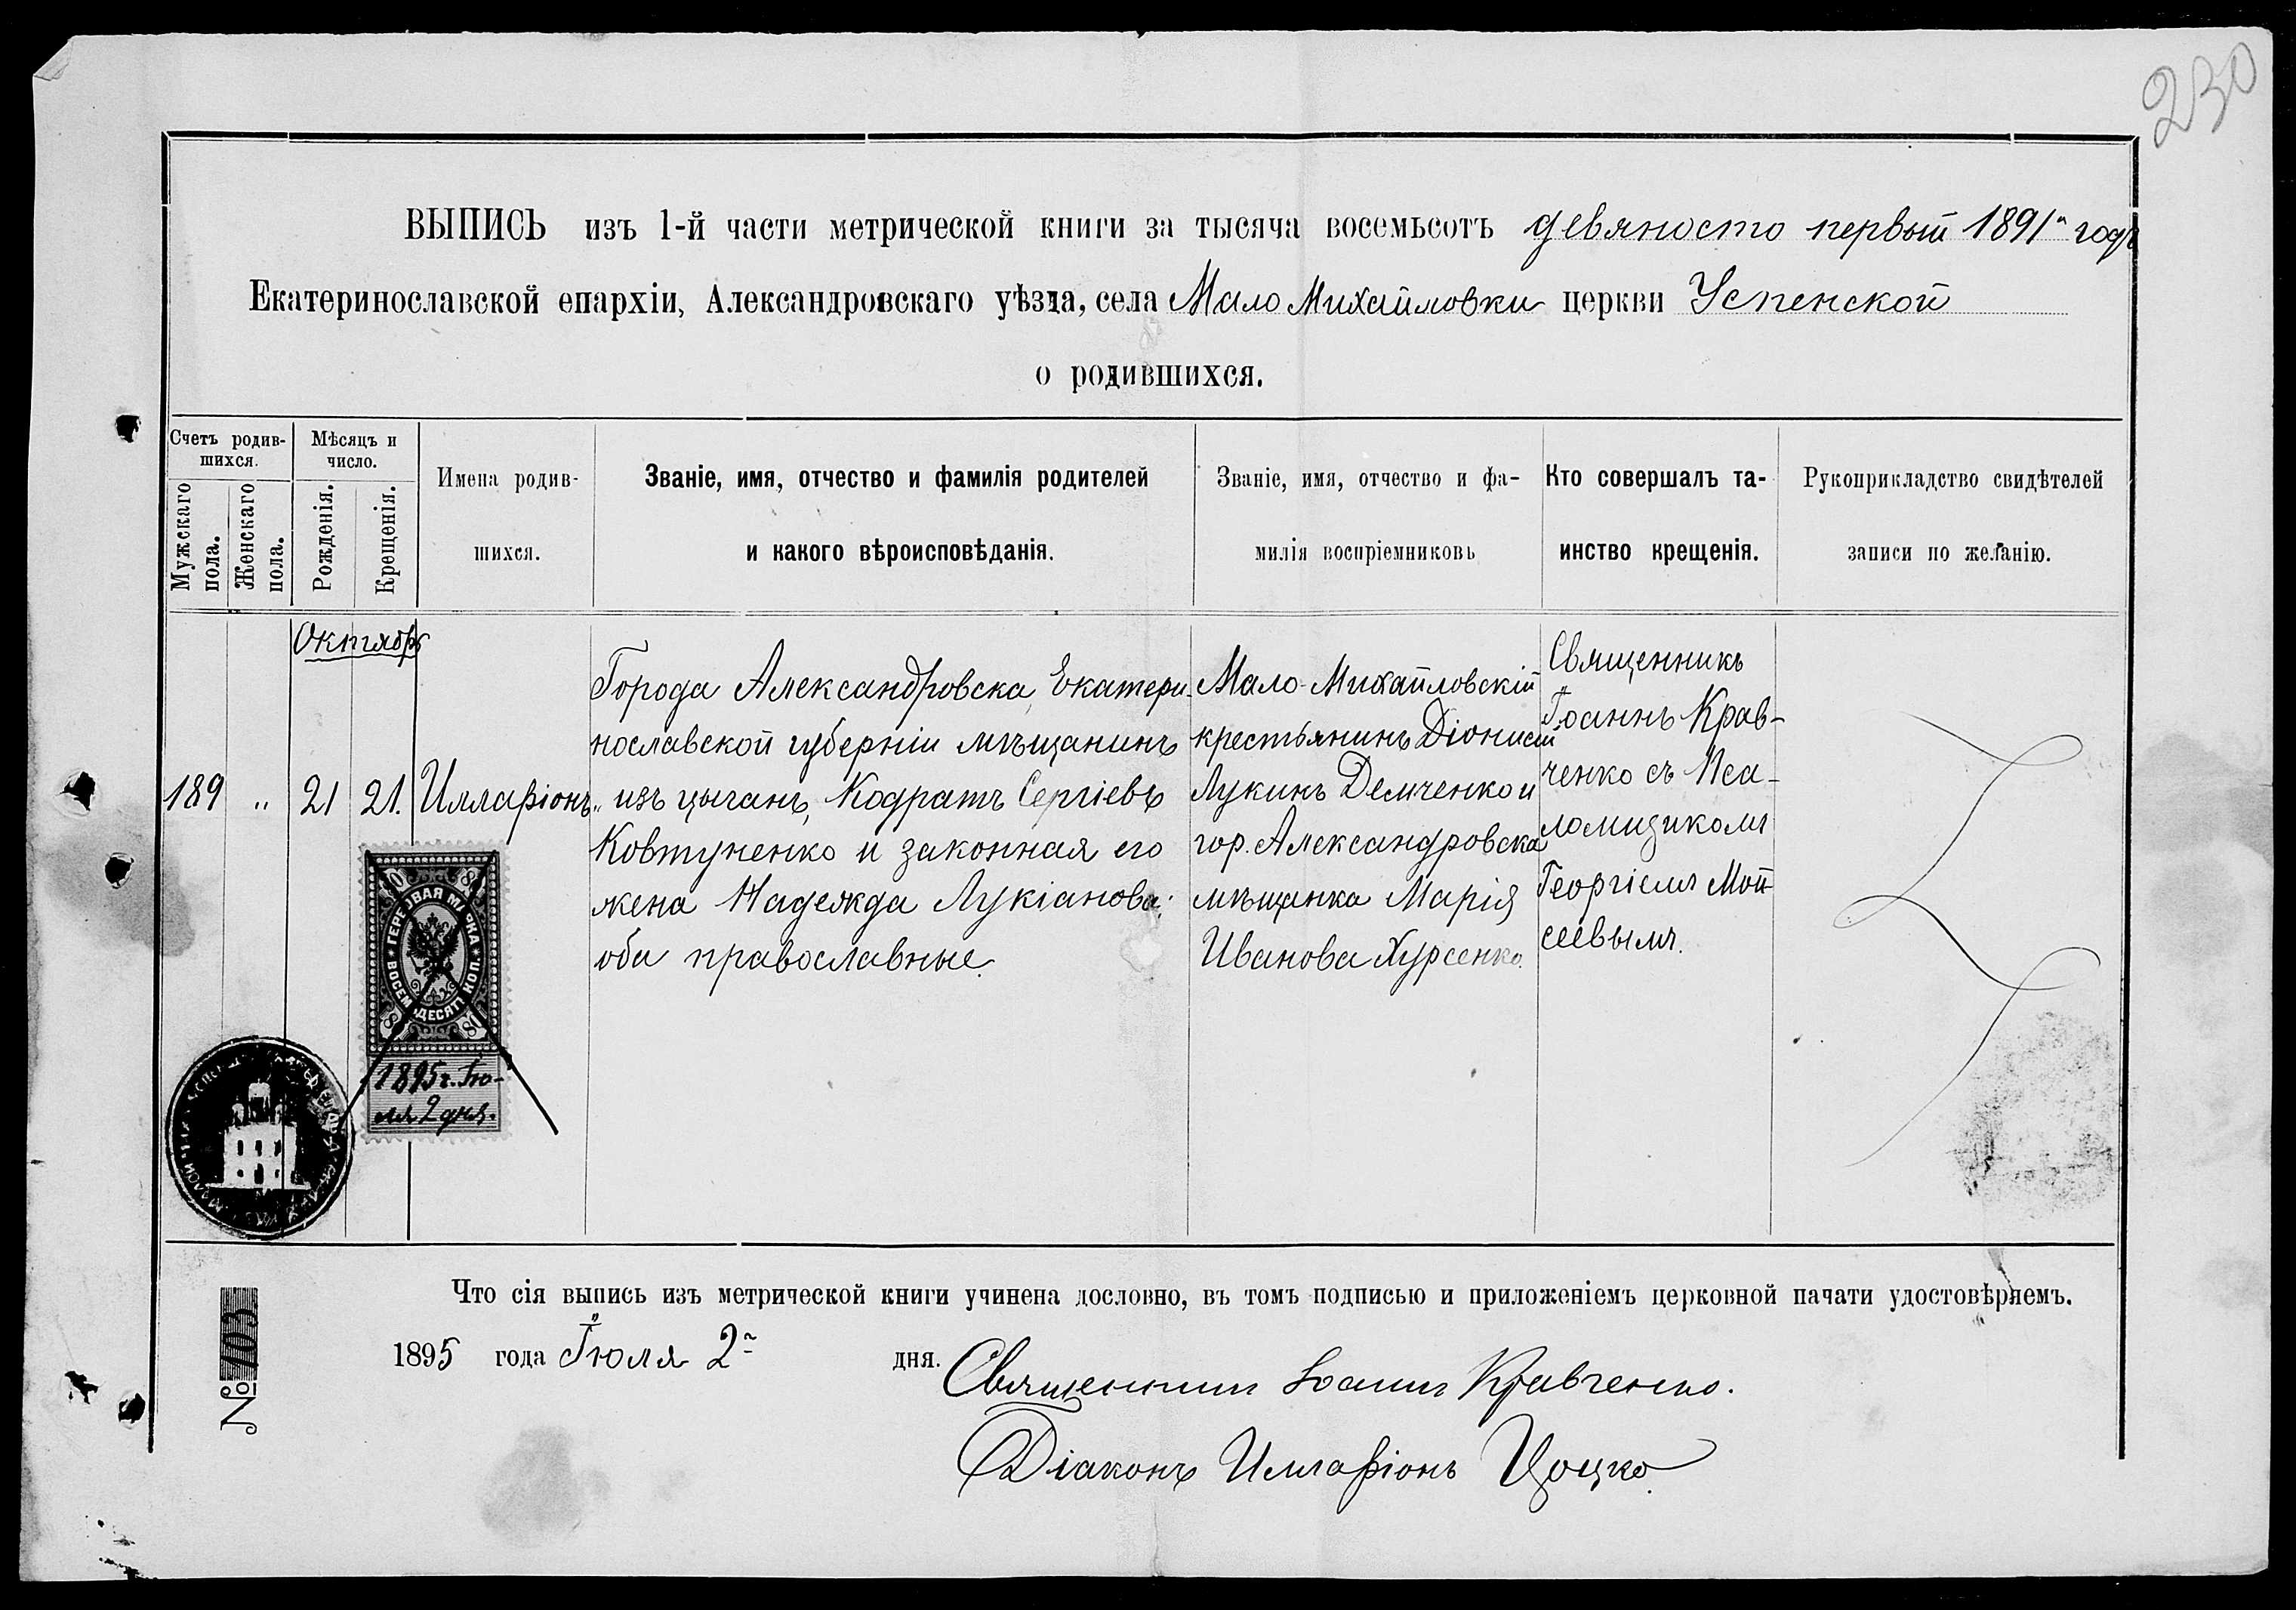 230
ВЫПИСЬ изъ 1-й части метрической книги за тысяча восемьсотъ девяносто первый 1891й годъ
Екатеринославской епархіи, Александровскаго уѣзда, села Мало Михайловки церкви Успенской
о родившихся.
Счетъ родив-
шихся.
Мужскаго
пола.
Женскаго
пола.
Мѣсяцъ и
число.
Рожденія.
Крещенія.
Имена родив-
шихся.
Званіе, имя, отчество и фамилія родителей
и какого вѣроисповѣданія.
Званіе, имя, отчество и фа-
милія воспріемниковъ
Кто совершалъ та-
инство крещенія.
Рукоприкладство свидѣтелей
записи по желанію.
Октябрь
189 „ 21 21. Илларіонъ
Города Александровска, Екатери-
нославской губерніи мѣщанинъ
изъ цыганъ, Кодратъ Сергіевъ
Ковтуненко и законная его
жена Надежда Лукіанова;
оба православные.
Мало-Михайловскій
крестьянинъ Діонисій
Лукинъ Демченко и
гор. Александровска
мѣщанка Марія
Иванова Хурсенко.
Священникъ
Іоаннъ Крав-
ченко съ Пса-
ломщикомъ
Георгіемъ Мой-
сеевымъ.
ГЕРБОВАЯ МАРКА
ВОСЕМЬДЕСЯТЪ КОП.
80
1895 г. Ію-
ля 2 дня.
Что сія выпись изъ метрической книги учинена дословно, въ томъ подписью и приложеніемъ церковной пачати удостовѣряемъ.
№ 103
1895 года Іюля 2 дня.
Священникъ Іоаннъ Кравченко.
Діаконъ Илларіонъ Цоцко.